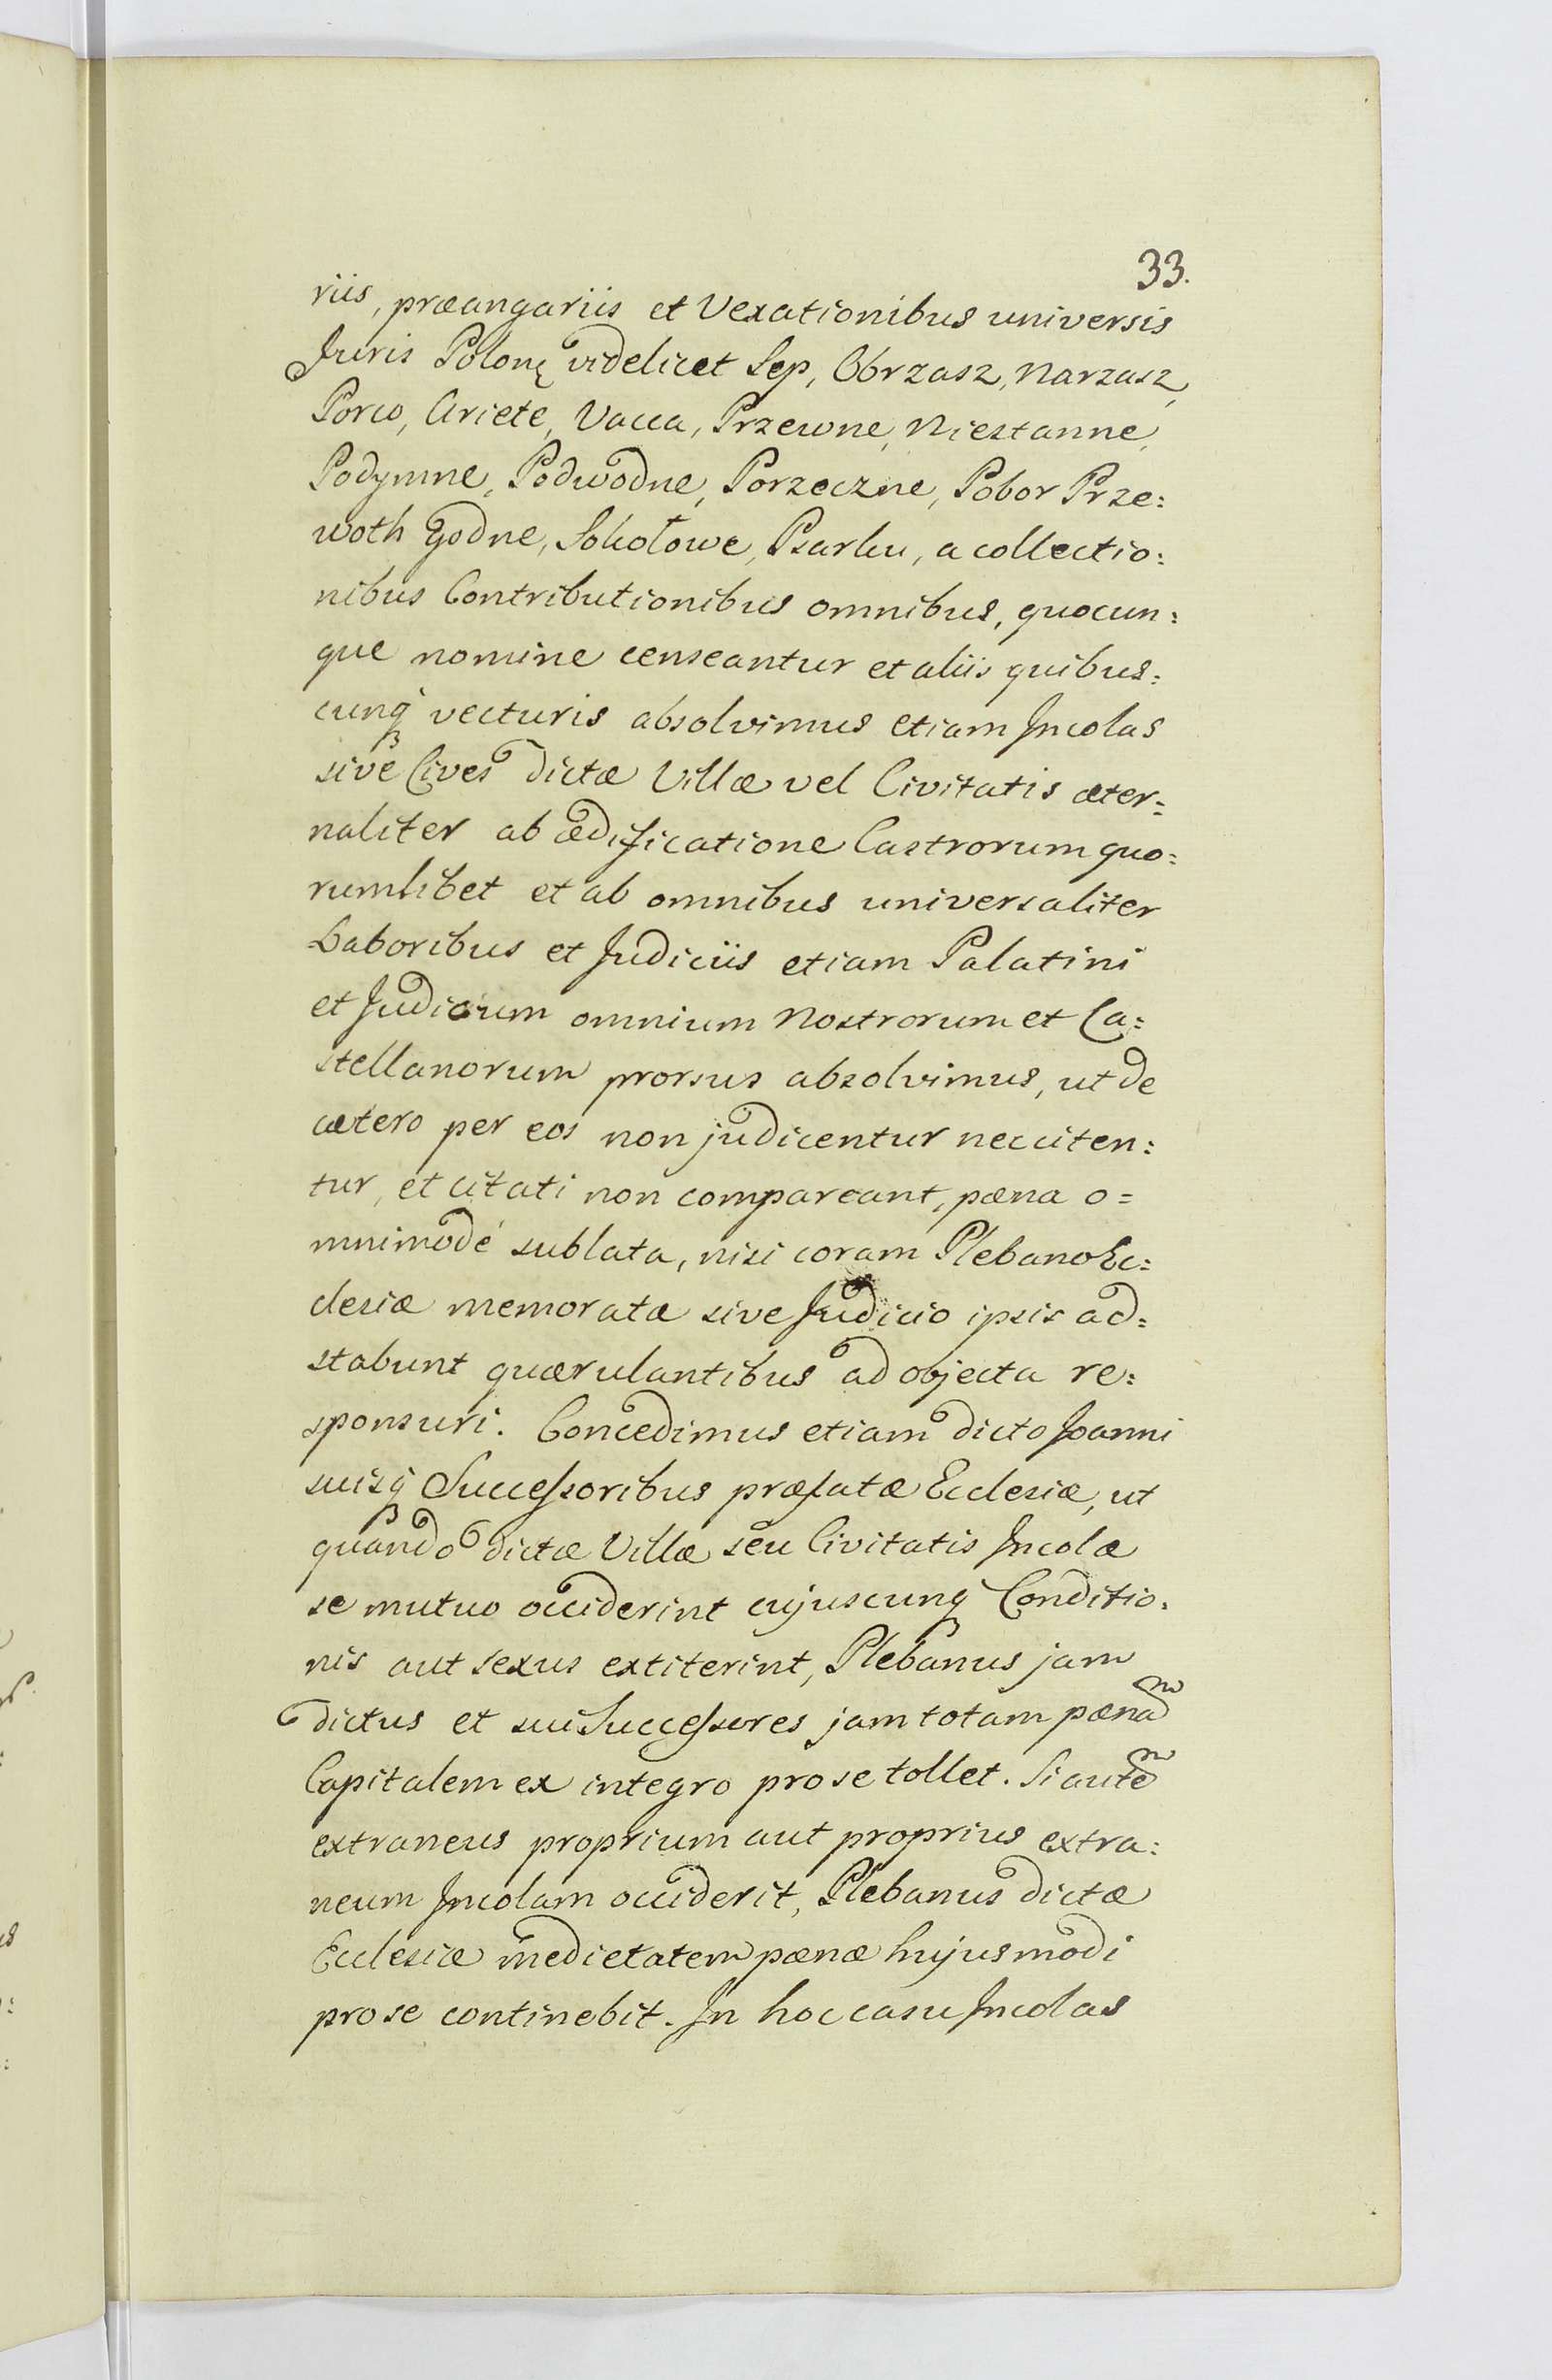 33.
riis, præangariis et Vexationibus universis
Juris Polonę videlicet Sep, Obrzasz, Narzasz,
Porco, Ariete, Vacca, Przewne, Niestanne,
Podymne, Podwodne, Porzeczne, Pobor Prze:
woth Godne, Sokołowe, Psarku, a collectio:
nibus Contributionibus omnibus, quocun:
que nomine censeantur et aliis quibus:
cunq̃ vecturis absolvimus etiam Incolas
sive Cives dictæ Villæ vel Civitatis æter:
naliter ab ædificatione Castrorum quo:
rumlibet et ab omnibus universaliter
Laboribus et Judiciis etiam Palatini
et Judicum omnium Nostrorum et Ca:
stellanorum prorsus absolvimus, ut de
cætero per eos non judicentur nec citen:
tur, et citati non compareant, pæna o=
mnimodé sublata, nisi coram Plebano Ec:
clesiæ memoratæ sive Judicio ipsis ad:
stabunt quærulantibus ad objecta re:
sponsuri. Concedimus etiam dicto Joanni
suisq̃ Succeſsoribus præfatæ Ecclesiæ, ut
quando dictæ Villæ seu Civitatis Incolæ
se mutuo occiderint cujuscunq̃ Conditio:
nis aut sexus extiterint, Plebanus jam
dictus et sui Succeſsores jam totam pænam
Capitalem ex integro pro se tollet. Si autem
extraneus proprium aut proprius extra:
neum Incolam occiderit, Plebanus dictæ
Ecclesiæ medietatem pænæ hujusmodi
pro se continebit. In hoc casu Incolas